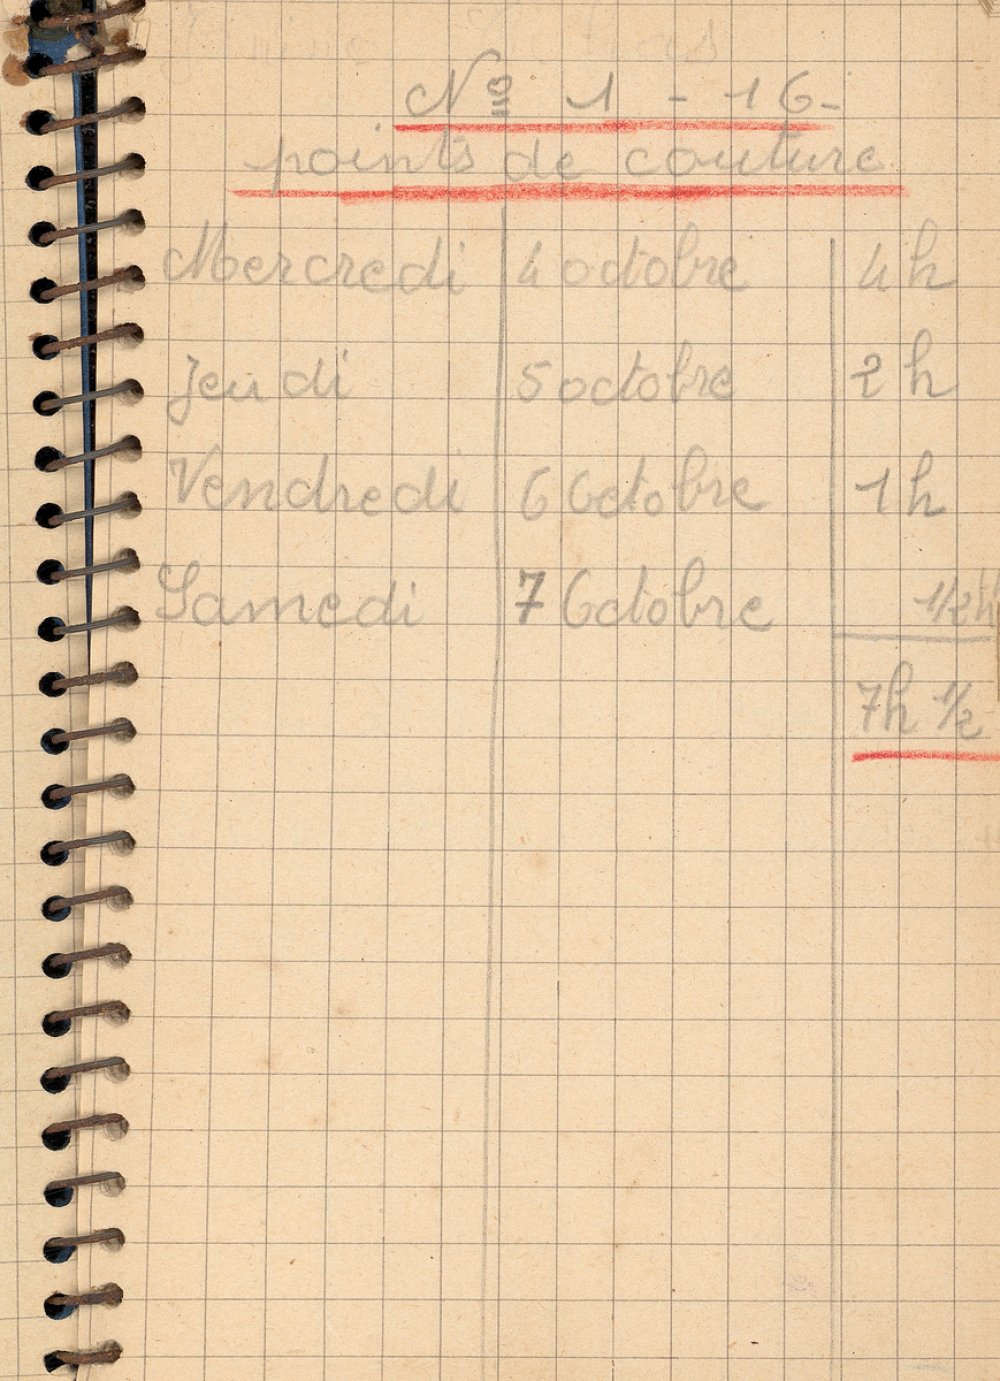 Nº 1 - 16-
points de couture
Mercredi 4 octobre 4h
Jeudi 5 octobre 2h
Vendredi 6 Octobre 1h
Samedi 7 Octobre 1/2h
7h 1/2